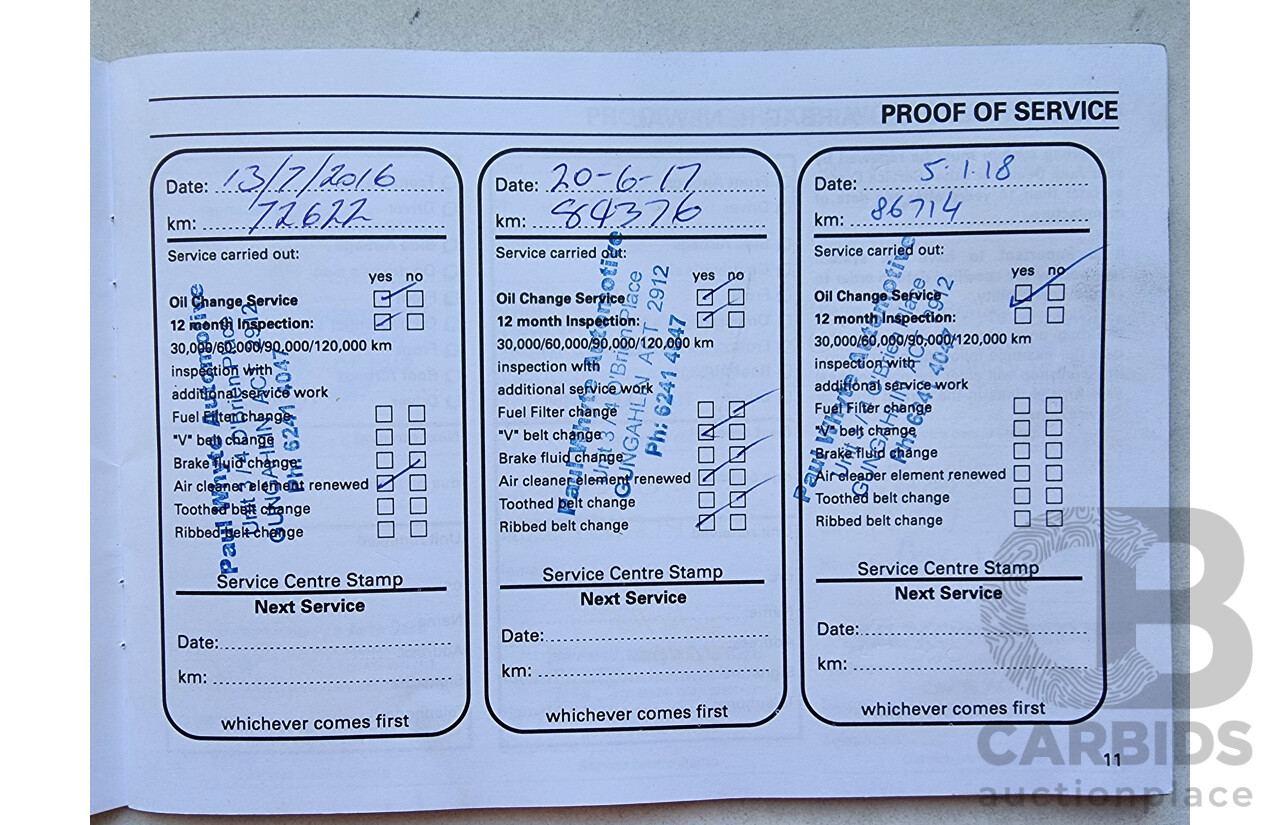 PROOF OF SERVICE
Date: 13/7/2016
km: 72622
Service carried out:
yes no
Oil Change Service
12 month Inspection:
30,000/60,000/90,000/120,000 km
inspection with
additional service work
Fuel Filter change
"V" belt change
Brake fluid change
Air cleaner element renewed
Toothed belt change
Ribbed belt change
Paul Whyte Automotive
Unit 3/4 O'Brien Place
GUNGAHLIN ACT 2912
Ph: 6241 4047
Service Centre Stamp
Next Service
Date:
km:
whichever comes first
Date: 20-6-17
km: 84376
Service carried out:
yes no
Oil Change Service
12 month Inspection:
30,000/60,000/90,000/120,000 km
inspection with
additional service work
Fuel Filter change
"V" belt change
Brake fluid change
Air cleaner element renewed
Toothed belt change
Ribbed belt change
Paul Whyte Automotive
Unit 3/4 O'Brien Place
GUNGAHLIN ACT 2912
Ph: 6241 4047
Service Centre Stamp
Next Service
Date:
km:
whichever comes first
Date: 5.1.18
km: 86714
Service carried out:
yes no
Oil Change Service
12 month Inspection:
30,000/60,000/90,000/120,000 km
inspection with
additional service work
Fuel Filter change
"V" belt change
Brake fluid change
Air cleaner element renewed
Toothed belt change
Ribbed belt change
Paul Whyte Automotive
Unit 3/4 O'Brien Place
GUNGAHLIN ACT 2912
Ph: 6241 4047
Service Centre Stamp
Next Service
Date:
km:
whichever comes first
11
CB
CARBIDS
auctionplace